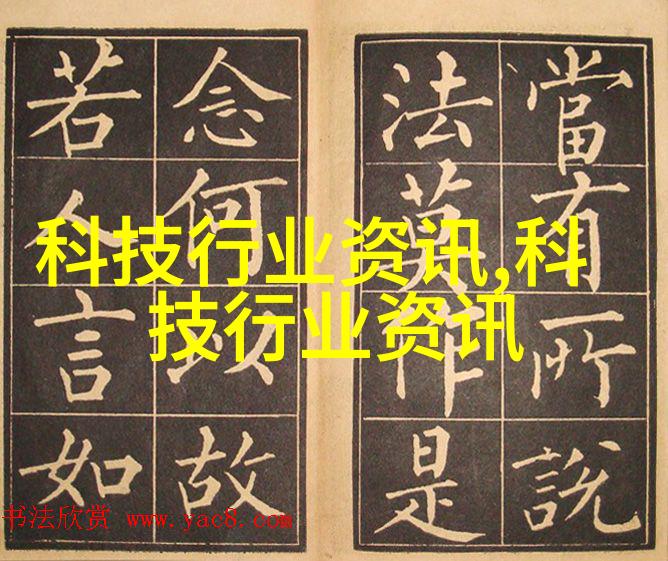 當有所說
法莫作是
念何以故
若人言如
科技行业资讯,科
技行业资讯
书法欣赏 www.yac8.com